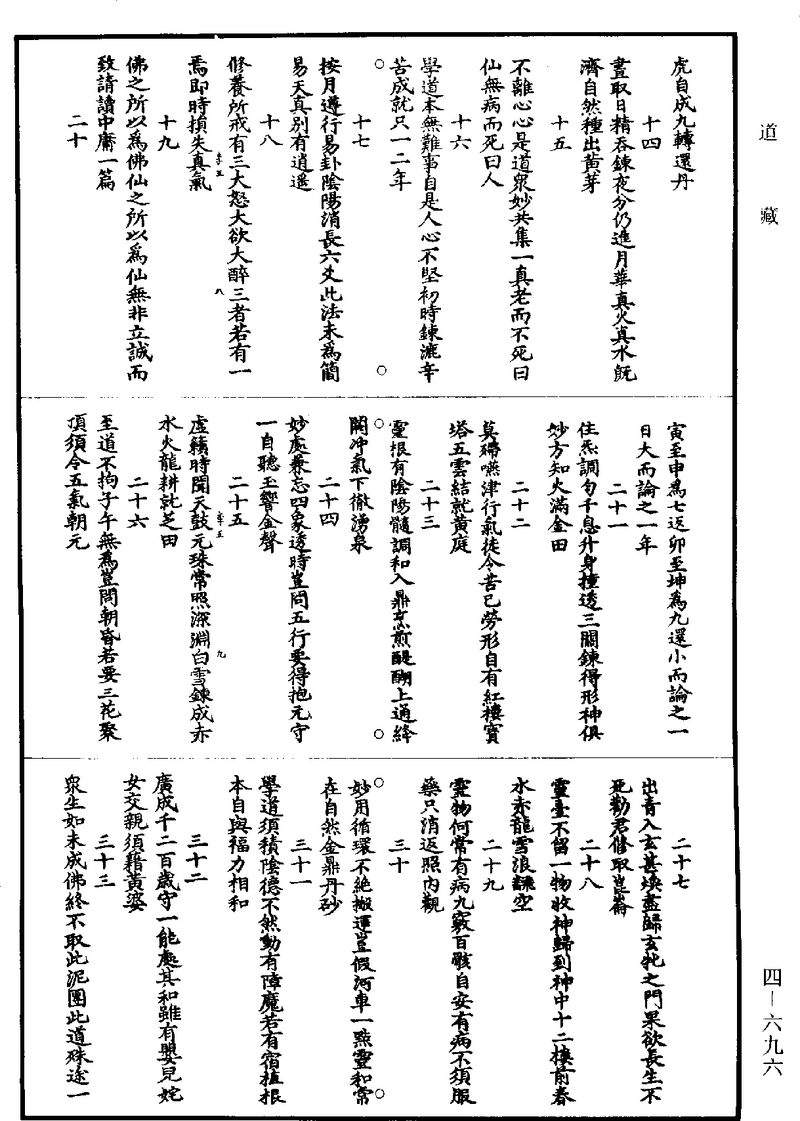 道藏
虎自成九轉還丹
十四
晝取日精吞鍊夜分仍進月華真火真水旣
濟自然種出黃芽
十五
不離心心是道衆妙共集一真老而不死曰
仙無病而死曰人
十六
學道本無難事自是人心不堅初時鍊漉辛
苦成就只一二年
十七
按月遵行易卦陰陽消長六爻此法未爲簡
易天真別有逍遥
十八
修養所戒有三大怒大欲大醉三者若有一
焉即時損失真氣
十九
佛之所以爲佛仙之所以爲仙無非立誠而
致請讀中庸一篇
二十
寅至申爲七返卯至坤爲九還小而論之一
日大而論之一年
二十一
住炁調勻千息升身撞透三關鍊得形神俱
妙方知火滿金田
二十二
莫稱嚥津行氣徒令苦己勞形自有紅樓寳
塔五雲結就黃庭
二十三
靈根有陰陽髓調和入鼎烹煎醍醐上通絳
闕冲氣下徹湧泉
二十四
妙處兼忘四象透時豈問五行要得抱元守
一自聽玉響金聲
二十五
虛籟時聞天鼓元珠常照深淵白雪鍊成赤
水火龍耕就芝田
二十六
至道不拘子午無爲豈問朝昏若要三花聚
頂須令五氣朝元
二十七
出青入玄甚埃盡歸玄牝之門果欲長生不
死勸君修取崑崙
二十八
靈臺不留一物收神歸到神中十二樓前春
水赤龍雪浪謙空
二十九
靈物何常有病九竅百骸自安有病不須服
藥只消返照内觀
三十
妙用循環不絶搬運豈假河車一㸃靈和常
在自然金鼎丹砂
三十一
學道須積陰德不然動有障魔若有宿植根
本自與福力相和
三十二
廣成千二百歲守一能處其和雖有嬰兒姹
女交親須藉黃婆
三十三
衆生如未成佛終不取此泥團此道殊途一
四—六九六